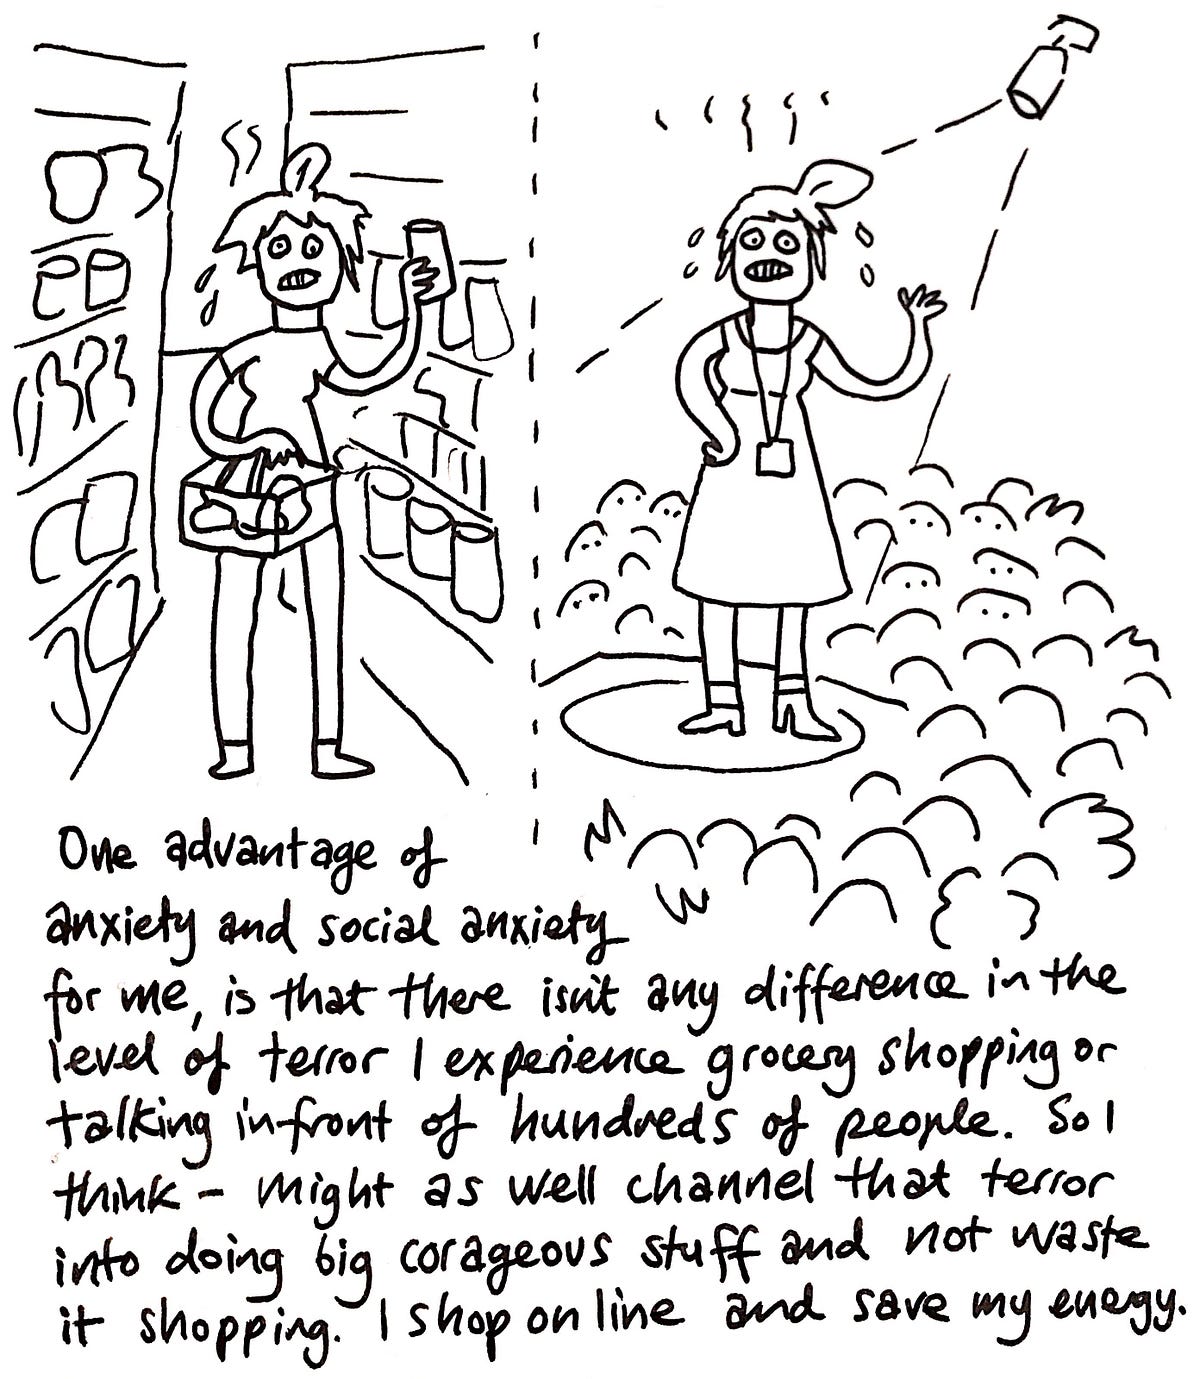 One advantage of
anxiety and social anxiety
for me, is that there isn't any difference in the
level of terror I experience grocery shopping or
talking infront of hundreds of people. So I
think - might as well channel that terror
into doing big corageous stuff and not waste
it shopping. I shop on line and save my energy.